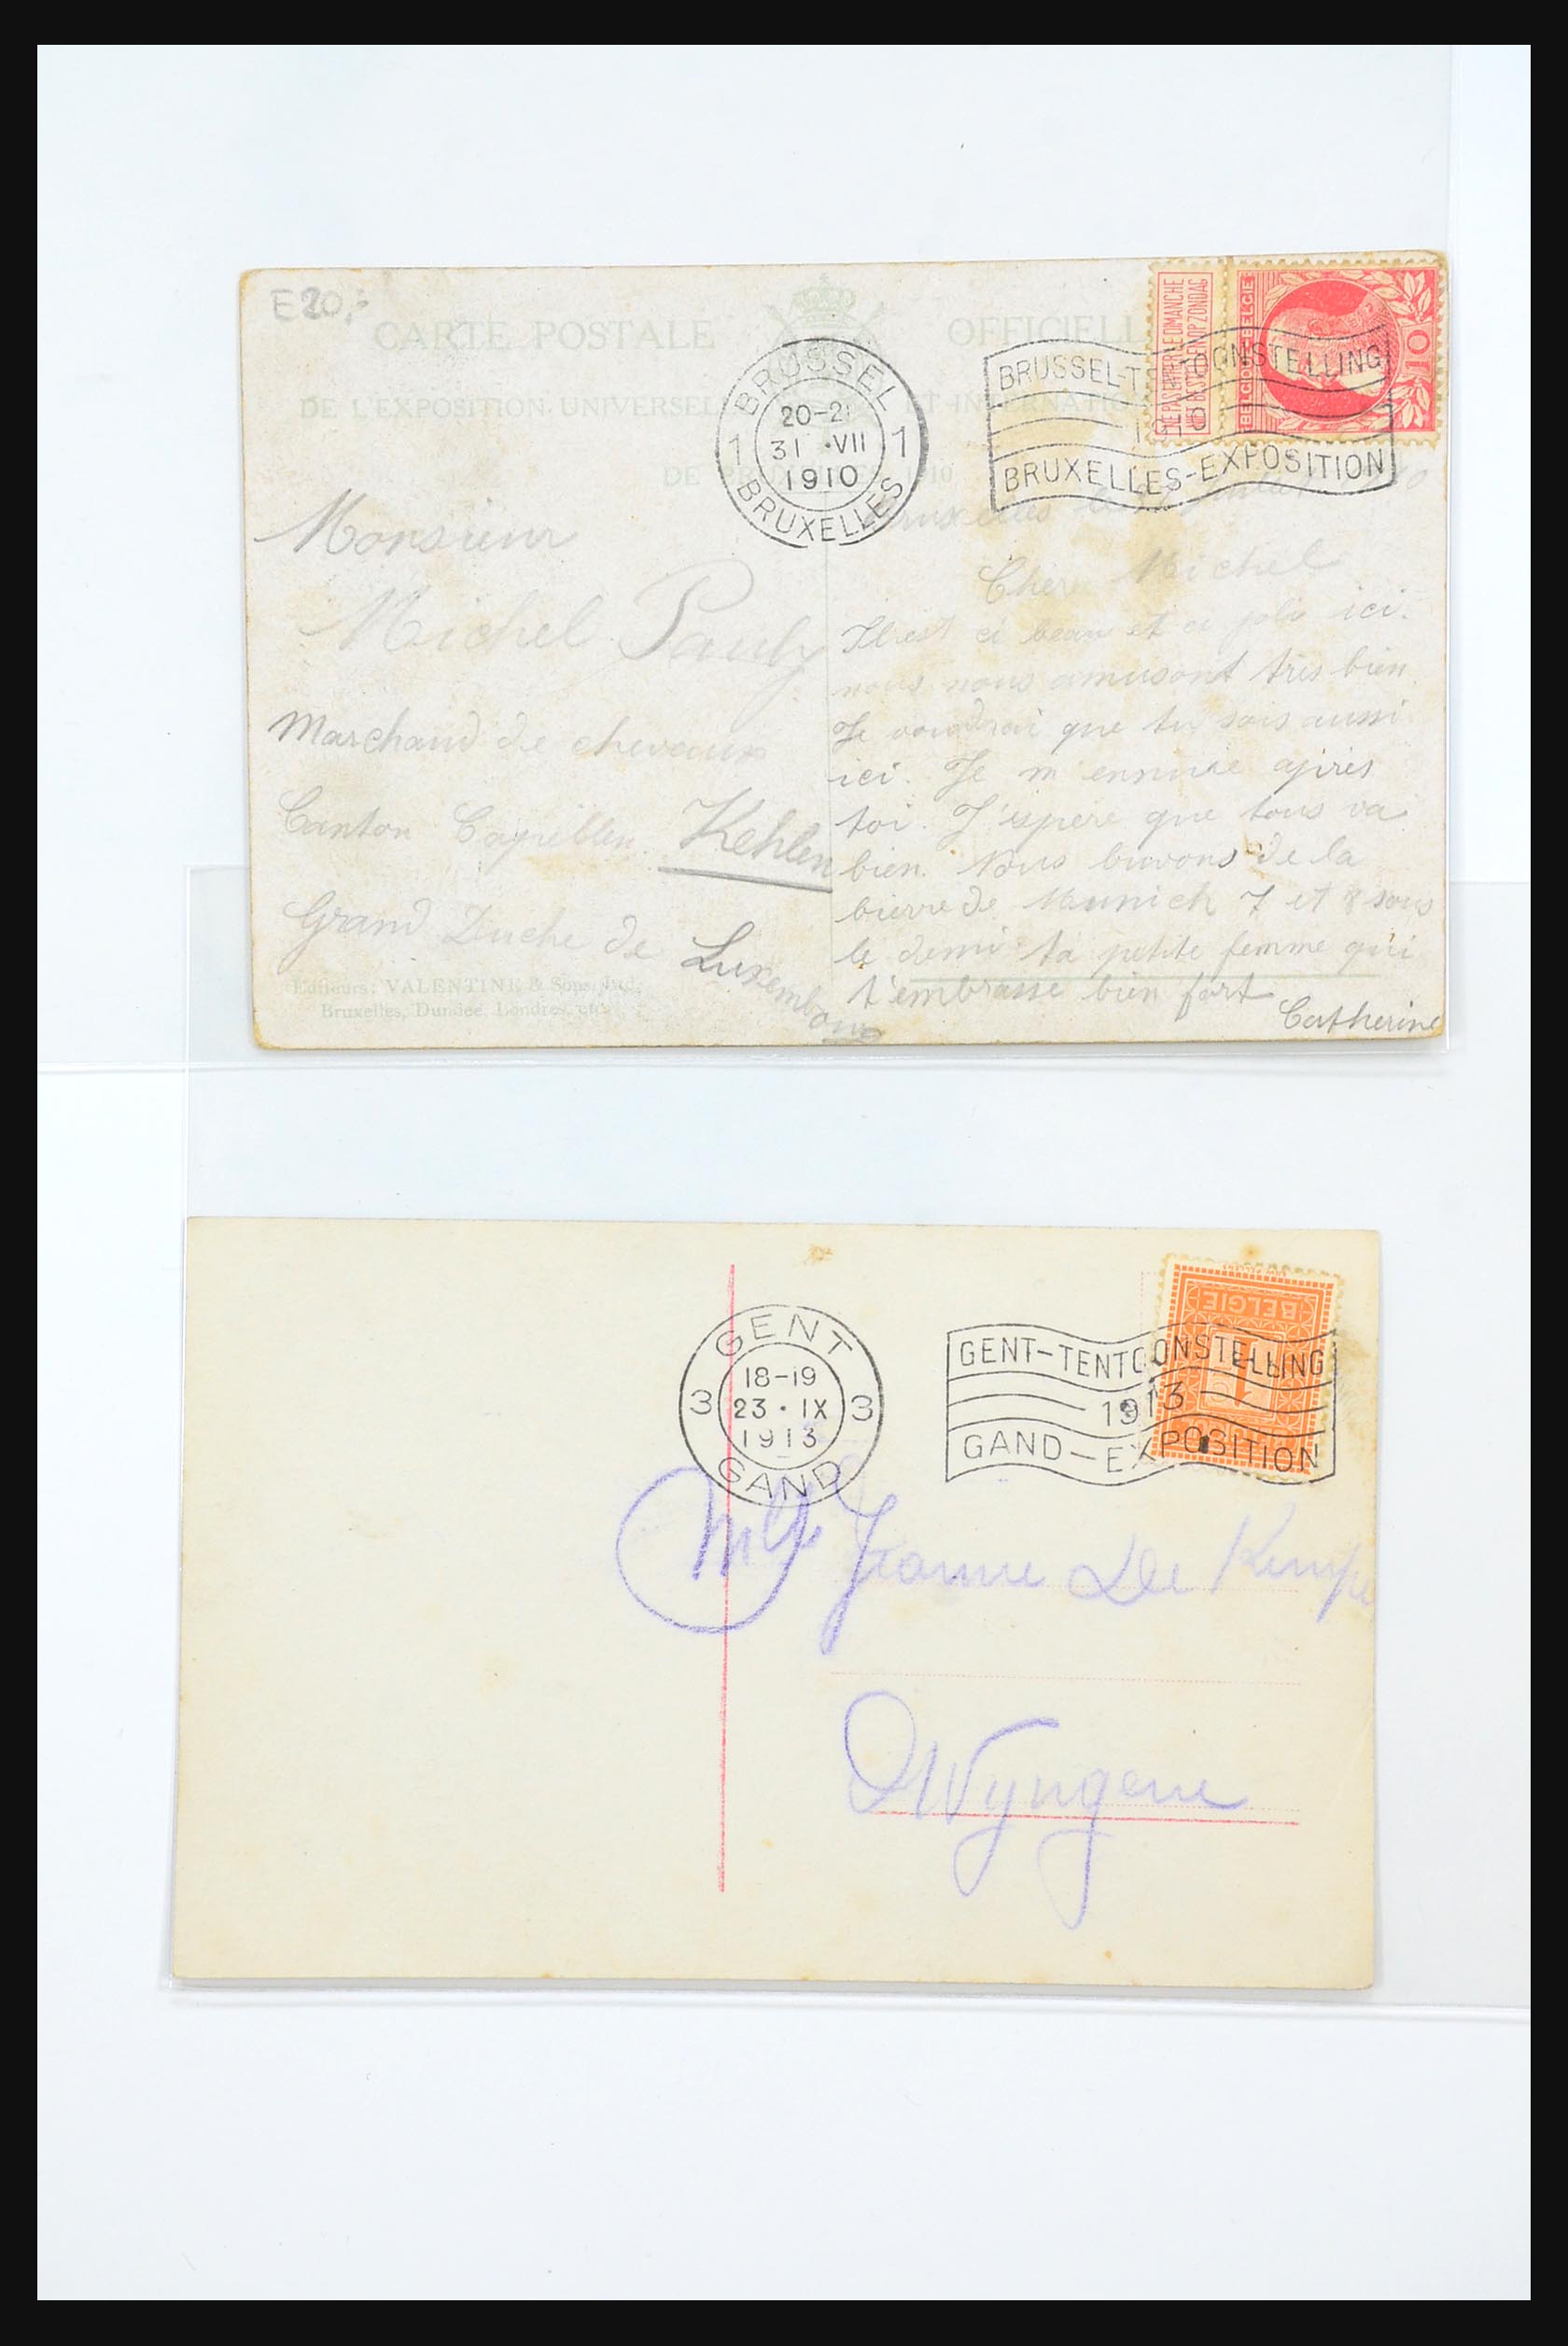 E20,-
CARTE POSTALE OFFICIELL
DE L'EXPOSITION UNIVERSEL ET INTERNATIO
DE BRUXELLES 1910
BRUSSEL
20-21
1 31 ·VII 1
1910
BRUXELLES
BRUSSEL-TENTOONSTELLING
1910
BRUXELLES-EXPOSITION
NE PAS LIVRER LE DIMANCHE
NIET BESTELLEN OP ZONDAG
BELGIQUE BELGIE
10
Monsieur
Michel Pauly
Marchand de chevaux
Canton Capellen. Kehlen
Grand Duche de Luxembourg
Editeurs: VALENTINE & Sons, Ltd.
Bruxelles, Dundee, Londres, etc.
Bruxelles le juillet
Cher Michel
Il est ci beau et ci joli ici.
nous nous amusont très bien.
Je voudrai que tu sois aussi
ici. Je m'ennuie après
toi. J'éspère que tous va
bien. Nous buvons de la
bierre de Munich 7 et 8 sous
le demi ta petite femme qui
t'embrasse bien fort
Catherine
GENT
18-19
3 23 · IX 3
1913
GAND
GENT-TENTOONSTELLING
1913
GAND-EXPOSITION
BELGIE
1
Mlle Jeanne De Kempe
Wyngene